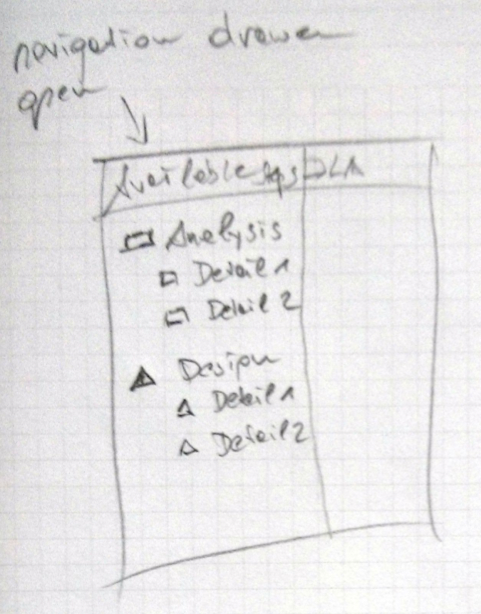 navigation drawer
open
Available
Analysis
Detail 1
Detail 2
Design
Detail 1
Detail 2